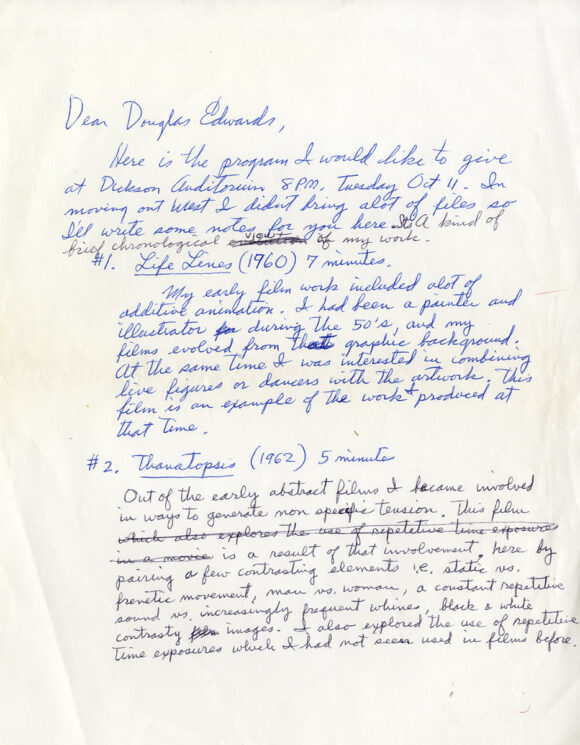 Dear Douglas Edwards,
Here is the program I would like to give
at Dickson Auditorium 8PM, Tuesday Oct 11. In
moving out West I didn't bring alot of files so
I'll write some notes for you here. It's A kind of
brief chronological view of my work.
#1. Life Lines (1960) 7 minutes.
My early film work included alot of
additive animation. I had been a painter and
illustrator during the 50's, and my
films evolved from that graphic background.
At the same time I was interested in combining
live figures or dancers with the artwork. This
film is an example of the work I produced at
that time.
#2. Thanatopsis (1962) 5 minutes
Out of the early abstract films I became involved
in ways to generate non specific tension. This film
which also explores the use of repetitive time exposures
in a movie is a result of that involvement, here by
pairing a few contrasting elements i.e. static vs.
frenetic movement, man vs. woman, a constant repetitive
sound vs. increasingly frequent whines, black & white
contrasty images. I also explored the use of repetitive
time exposures which I had not seen used in films before.